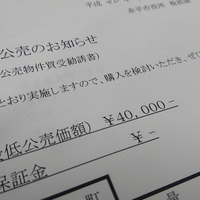 平成
赤平市役所
公売のお知らせ
公売物件買受勧誘書)
とおり実施しますので、購入を検討いただき、ぜひ
低公売価額) ¥40,000-
保証金 ¥-
町
量